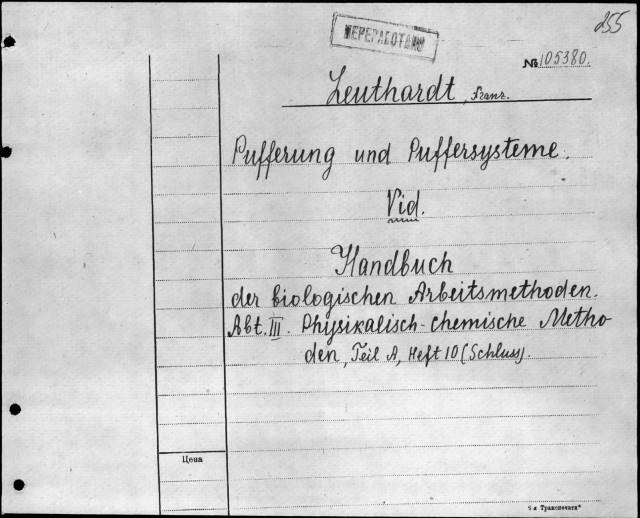 255
ПЕРЕРАБОТАНО
№ 105380.
Leuthardt, Franz.
Pufferung und Puffersysteme.
Vid.
Handbuch
der biologischen Arbeitsmethoden.
Abt. III. Physikalisch-chemische Metho-
den, Teil A, Heft 10 (Schluss).
Цена
я Транспечати"